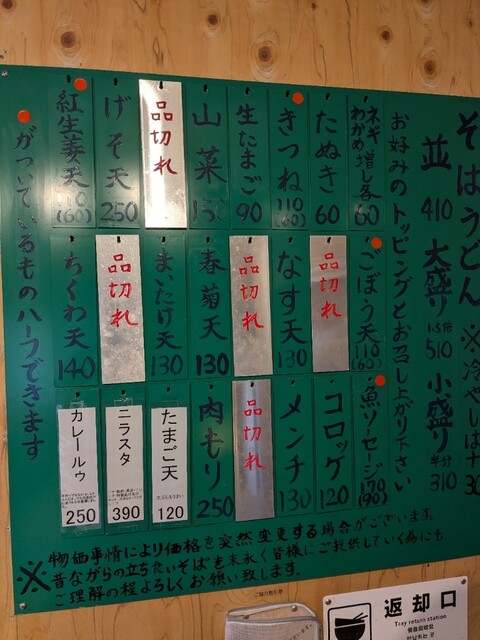 そばうどん ※冷やしは+30
並 410 大盛り 1.5倍 510 小盛り 半分 310
お好みのトッピングとお召し上がり下さい
ネギ わかめ 増し各 60
たぬき 60
きつね 110 (60)
生たまご 90
山菜
品切れ
げそ天 250
紅生姜天 110 (60)
ごぼう天 110 (60)
品切れ
なす天 130
品切れ
春菊天 130
まいたけ天 130
品切れ
ちくわ天 140
魚ソーセージ 170 (90)
コロッケ 120
メンチ 130
品切れ
肉もり 250
たまご天 120
ニラスタ 390
カレールゥ 250
がついているものハーフできます
※物価事情により価格を突然変更する場合がございます。
昔ながらの立ち食いそばを末永く皆様にご提供していく為にも
ご理解の程よろしくお願い致します。
返却口
Tray return station